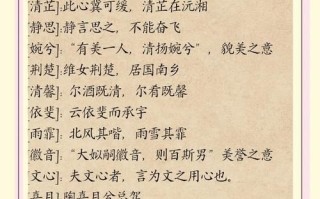 [清芷]: 此心冀可缓，清芷在沅湘
[静思]: 静言思之，不能奋飞
[婉兮]: “有美一人，清扬婉兮”，貌美之意
[荆楚]: 维女荆楚，居国南乡
[清馨]: 尔酒既清，尔肴既馨
[依斐]: 云依斐而承宇
[雨霏]: 北风其喈，雨雪其霏
[徽音]: “大姒嗣徽音，则百斯男”美誉之意
[文心]: 夫文心者，言为文之用心也。